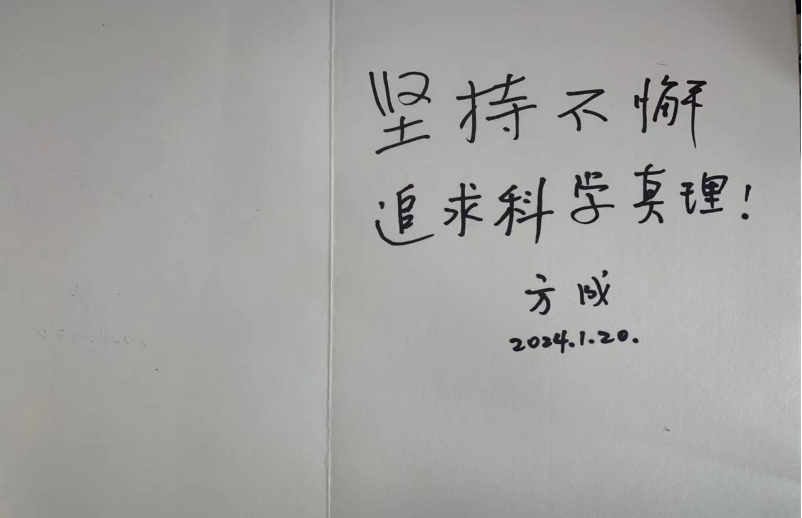 坚持不懈
追求科学真理!
方成
2024.1.20.